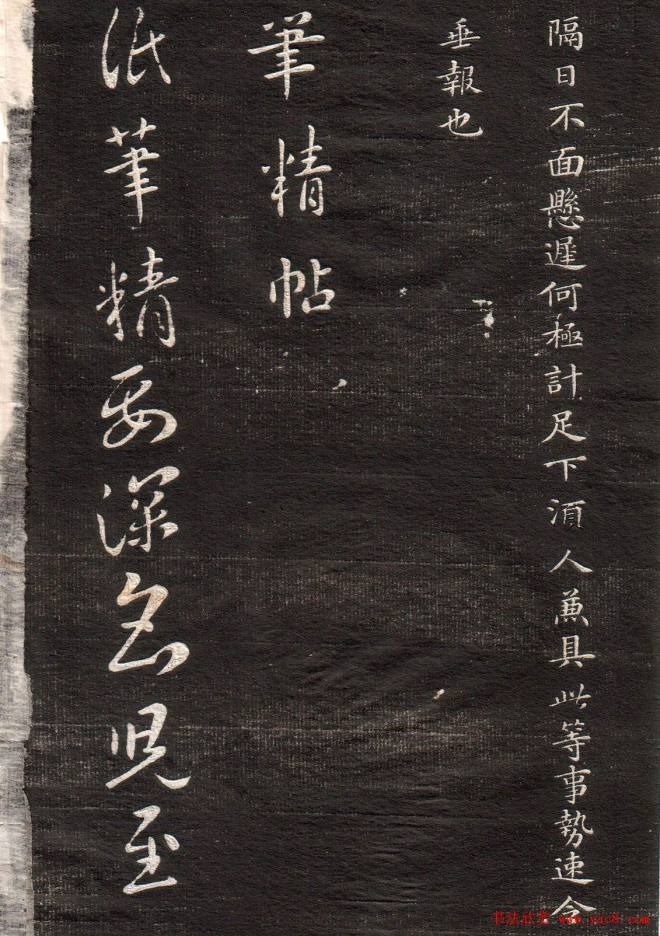 隔日不面懸遲何極計足下湏人兼具此等事勢速令
垂報也
筆精帖
紙筆精要深至
书法欣赏 www.yac8.com